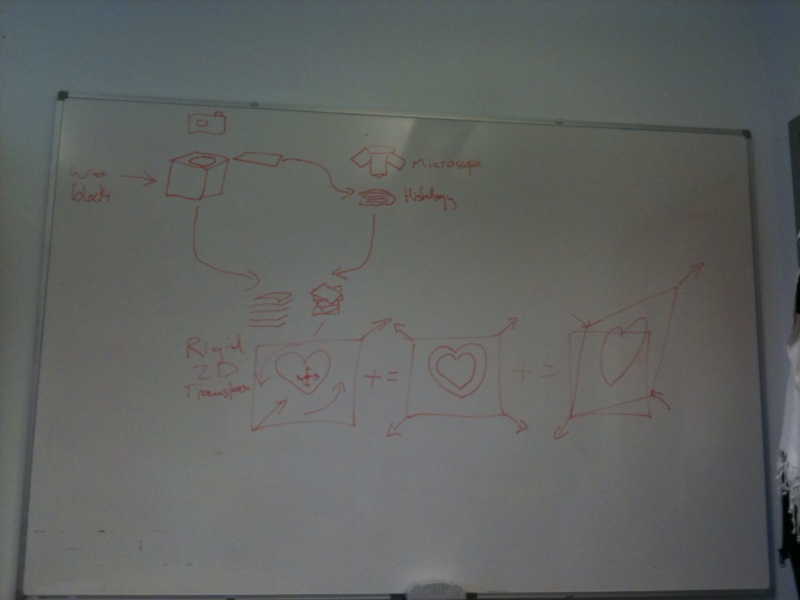 Wax
block
Microscope
Histology
Rigid
2D
Transform
+=
+=